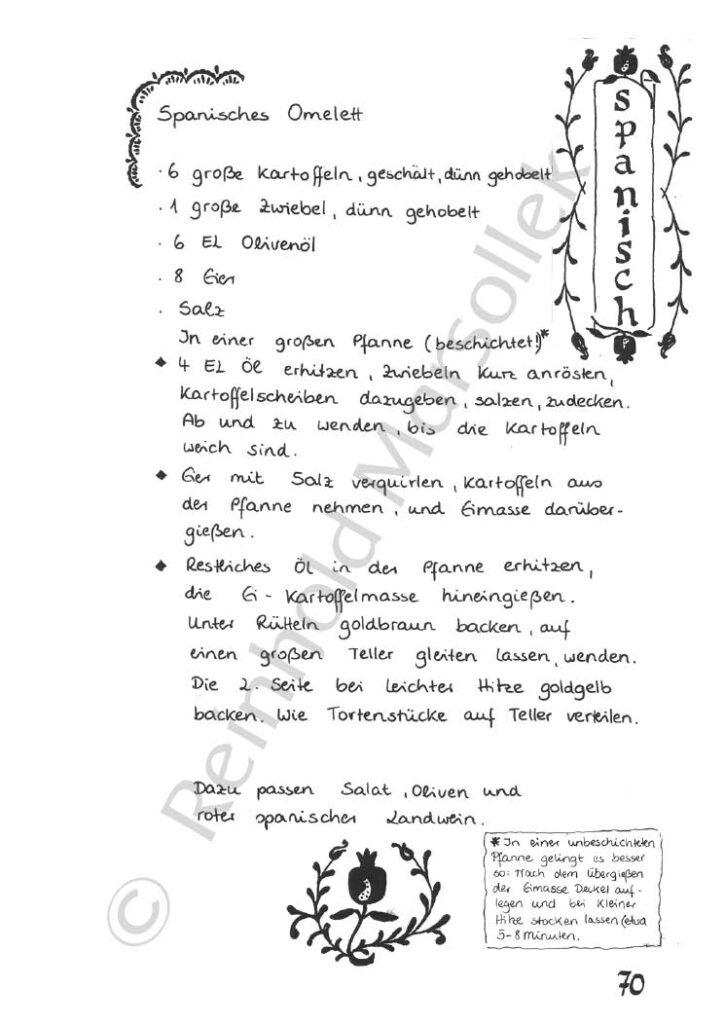 Spanisches Omelett
spanisch
· 6 große Kartoffeln, geschält, dünn gehobelt
· 1 große Zwiebel, dünn gehobelt
· 6 EL Olivenöl
· 8 Eier
· Salz
In einer großen Pfanne (beschichtet!)*
◆ 4 EL Öl erhitzen, Zwiebeln kurz anrösten,
Kartoffelscheiben dazugeben, salzen, zudecken.
Ab und zu wenden, bis die Kartoffeln
weich sind.
◆ Eier mit Salz verquirlen, Kartoffeln aus
der Pfanne nehmen, und Eimasse darüber-
gießen.
◆ Restliches Öl in der Pfanne erhitzen,
die Ei-Kartoffelmasse hineingießen.
Unter Rütteln goldbraun backen, auf
einen großen Teller gleiten lassen, wenden.
Die 2. Seite bei leichter Hitze goldgelb
backen. Wie Tortenstücke auf Teller verteilen.
Dazu passen Salat, Oliven und
roter spanischer Landwein.
* In einer unbeschichteten
Pfanne gelingt es besser
so: Nach dem Übergießen
der Eimasse Deckel auf-
legen und bei kleiner
Hitze stocken lassen (etwa
5-8 Minuten.
70
© Reinhold Marsollek